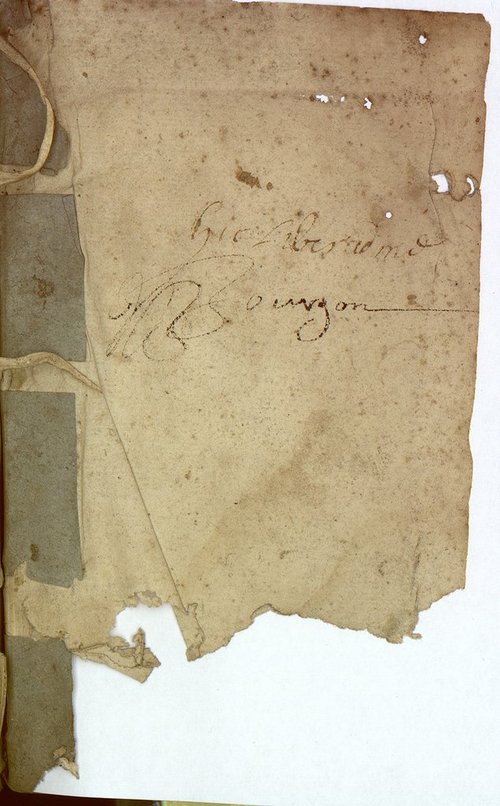 hic liber est me
Bourgon